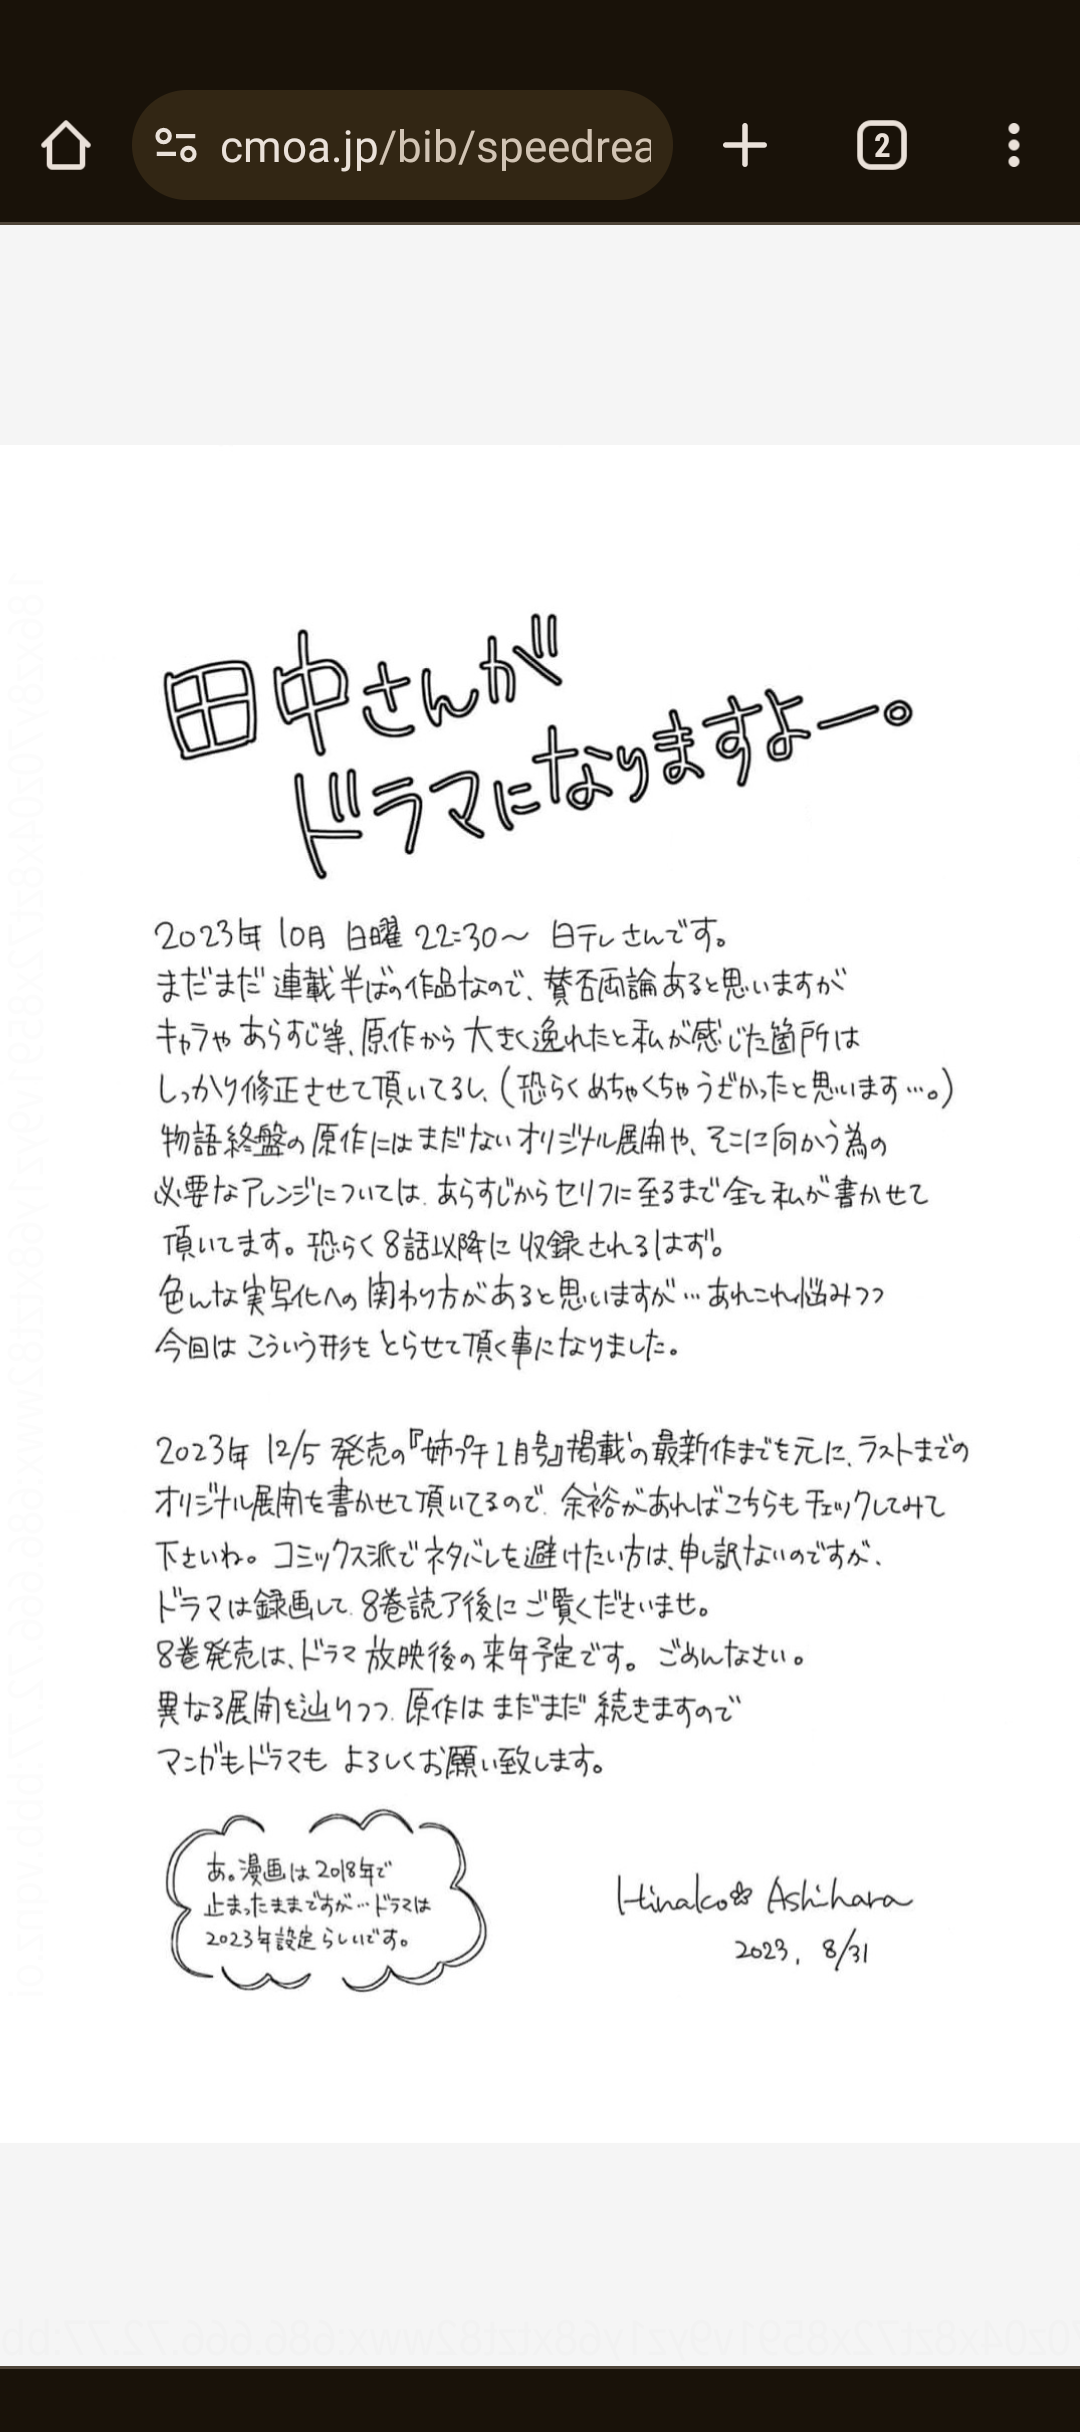 cmoa.jp/bib/speedrea
2
田中さんが
ドラマになりますよー。
2023年 10月 日曜 22:30～ 日テレさんです。
まだまだ 連載半ばの作品なので、賛否両論あると思いますが
キャラや あらすじ等、原作から 大きく逸れたと私が感じた箇所は
しっかり修正させて頂いてるし、(恐らく めちゃくちゃ うざかったと思います…。)
物語終盤の 原作にはまだない オリジナル展開や、そこに向かう為の
必要なアレンジについては、あらすじからセリフに至るまで全て私が書かせて
頂いてます。恐らく 8話以降に 収録されるはず。
色んな実写化への 関わり方があると思いますが…あれこれ悩みつつ
今回は こういう形を とらせて頂く事になりました。
2023年 12/5 発売の『姉プチ1月号』掲載の最新作までを元に、ラストまでの
オリジナル展開を書かせて頂いてるので、余裕があればこちらもチェックしてみて
下さいね。コミックス派でネタバレを避けたい方は、申し訳ないのですが、
ドラマは録画して、8巻読了後にご覧くださいませ。
8巻発売は、ドラマ放映後の来年予定です。ごめんなさい。
異なる展開を辿りつつ、原作は まだまだ 続きますので
マンガもドラマも よろしくお願い致します。
あ。漫画は2018年で
止まったままですが…ドラマは
2023年設定らしいです。
Hinako✿ Ashihara
2023. 8/31